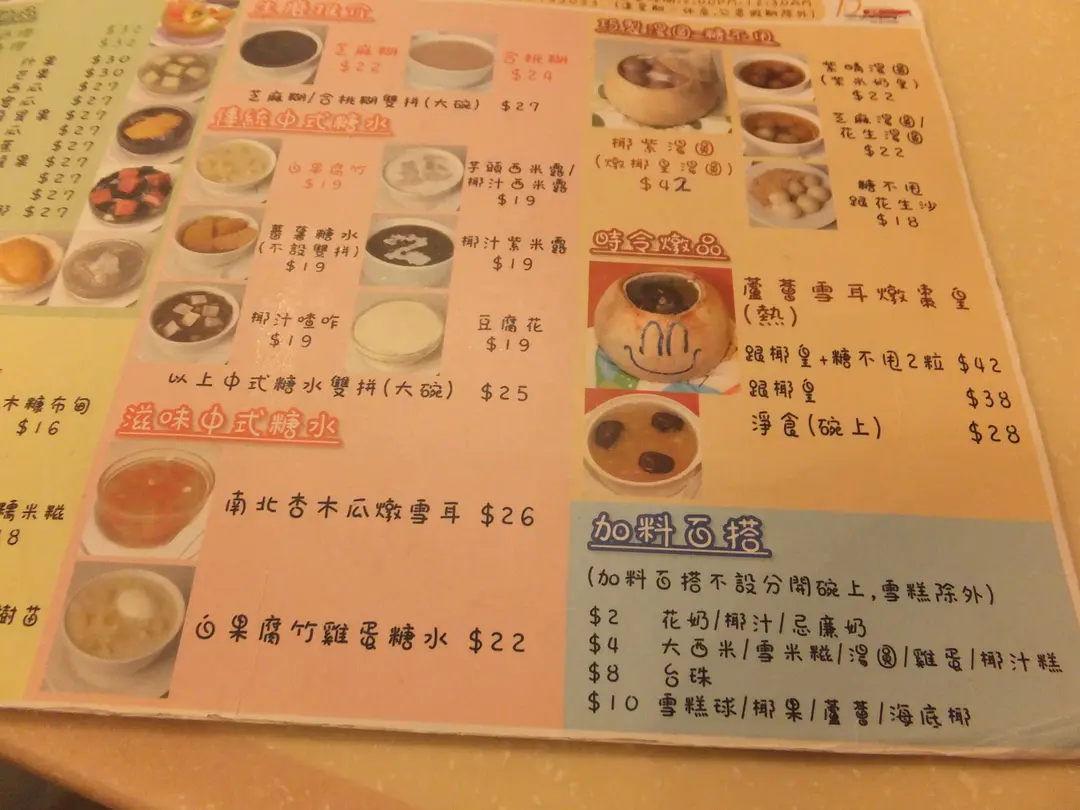 $32
$32
$30
$30
$27
$27
$27
$27
$27
$27
木糖布甸
$16
糯米糍
樹茁
芝麻糊
$22
合桃糊
$24
芝麻糊/合桃糊雙拼(大碗) $27
傳統中式糖水
白果腐竹
$19
芋頭西米露/
椰汁西米露
$19
蕃薯糖水
(不設雙拼)
$19
椰汁紫米露
$19
椰汁喳咋
$19
豆腐花
$19
以上中式糖水雙拼(大碗) $25
滋味中式糖水
南北杏木瓜燉雪耳 $26
白果腐竹雞蛋糖水 $22
巧製湯圓 糖不甩
椰紫湯圓
(燉椰皇湯圓)
$42
紫晴湯圓
(紫米奶皇)
$22
芝麻湯圓/
花生湯圓
$22
糖不甩
跟花生沙
$18
時令燉品
蘆薈雪耳燉棗皇
(熱)
跟椰皇+糖不甩2粒 $42
跟椰皇 $38
淨食(碗上) $28
加料百搭
(加料百搭不設分開碗上,雪糕除外)
$2 花奶/椰汁/忌廉奶
$4 大西米/雪米糍/湯圓/雞蛋/椰汁糕
$8 台珠
$10 雪糕球/椰果/蘆薈/海底椰